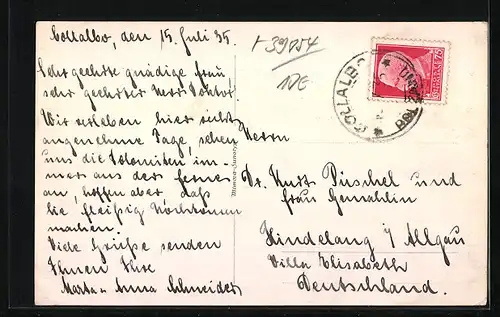 Collalbo, den 15. Juli 35.
Sehr geehrte gnädige Frau,
sehr geehrter Herr Doktor!
Wir verleben hier recht
angenehme Tage, sehen
uns die Dolomiten im-
mer aus der Ferne
an, hoffen aber daß
Sie fleißig
machen.
Viele Grüße senden
Ihnen Ihre
Marta u. Anna Schneider
+39154
10E
COLLALBO
75
Herrn
Dr. Kurt Püschel und
Frau Gemahlin
Hindelang i/ Allgäu
Villa Elisabeth
Deutschland.